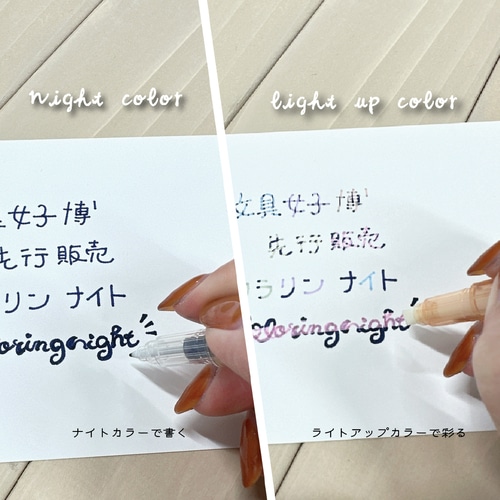 night color
女子博'
先行販売
リン ナイト
oringnight
ナイトカラーで書く
light up color
文具女子博'
先行販売
ラリン ナイト
loringnight
ライトアップカラーで彩る